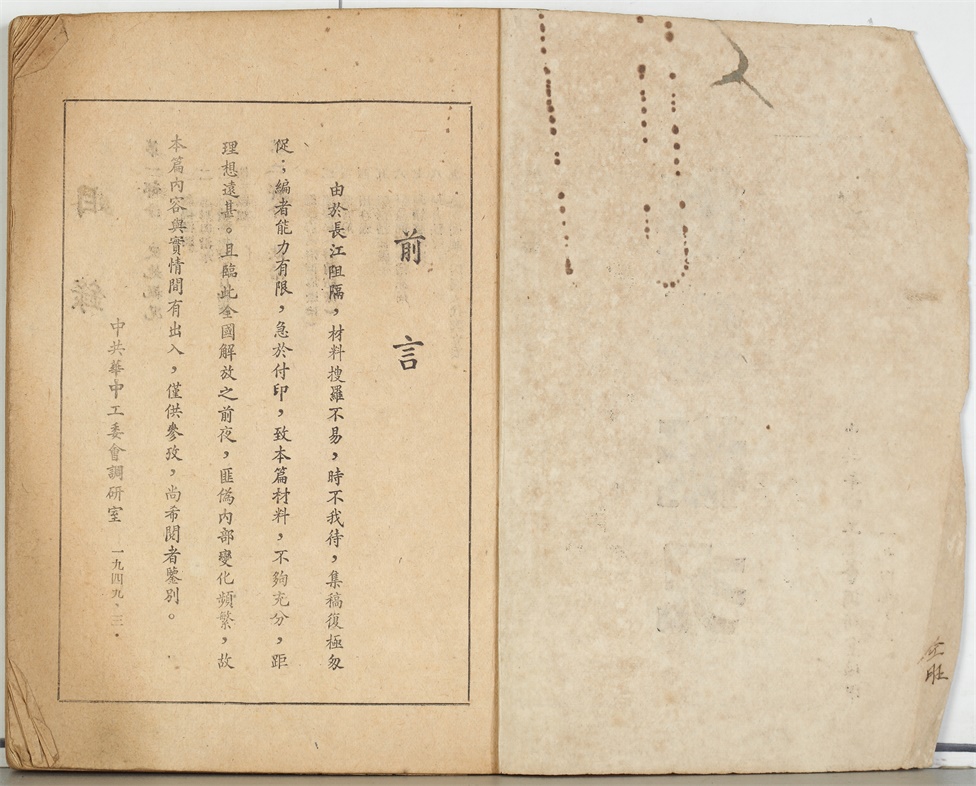 前言
由於長江阻隔，材料搜羅不易，時不我待，集稿復極匆
促；編者能力有限，急於付印，致本篇材料，不夠充分，距
理想遠甚。且臨此全國解放之前夜，匪僞內部變化頻繁，故
本篇內容與實情間有出入，僅供參攷，尚希閱者鑒別。
中共華中工委會調研室 一九四九、三.
目錄